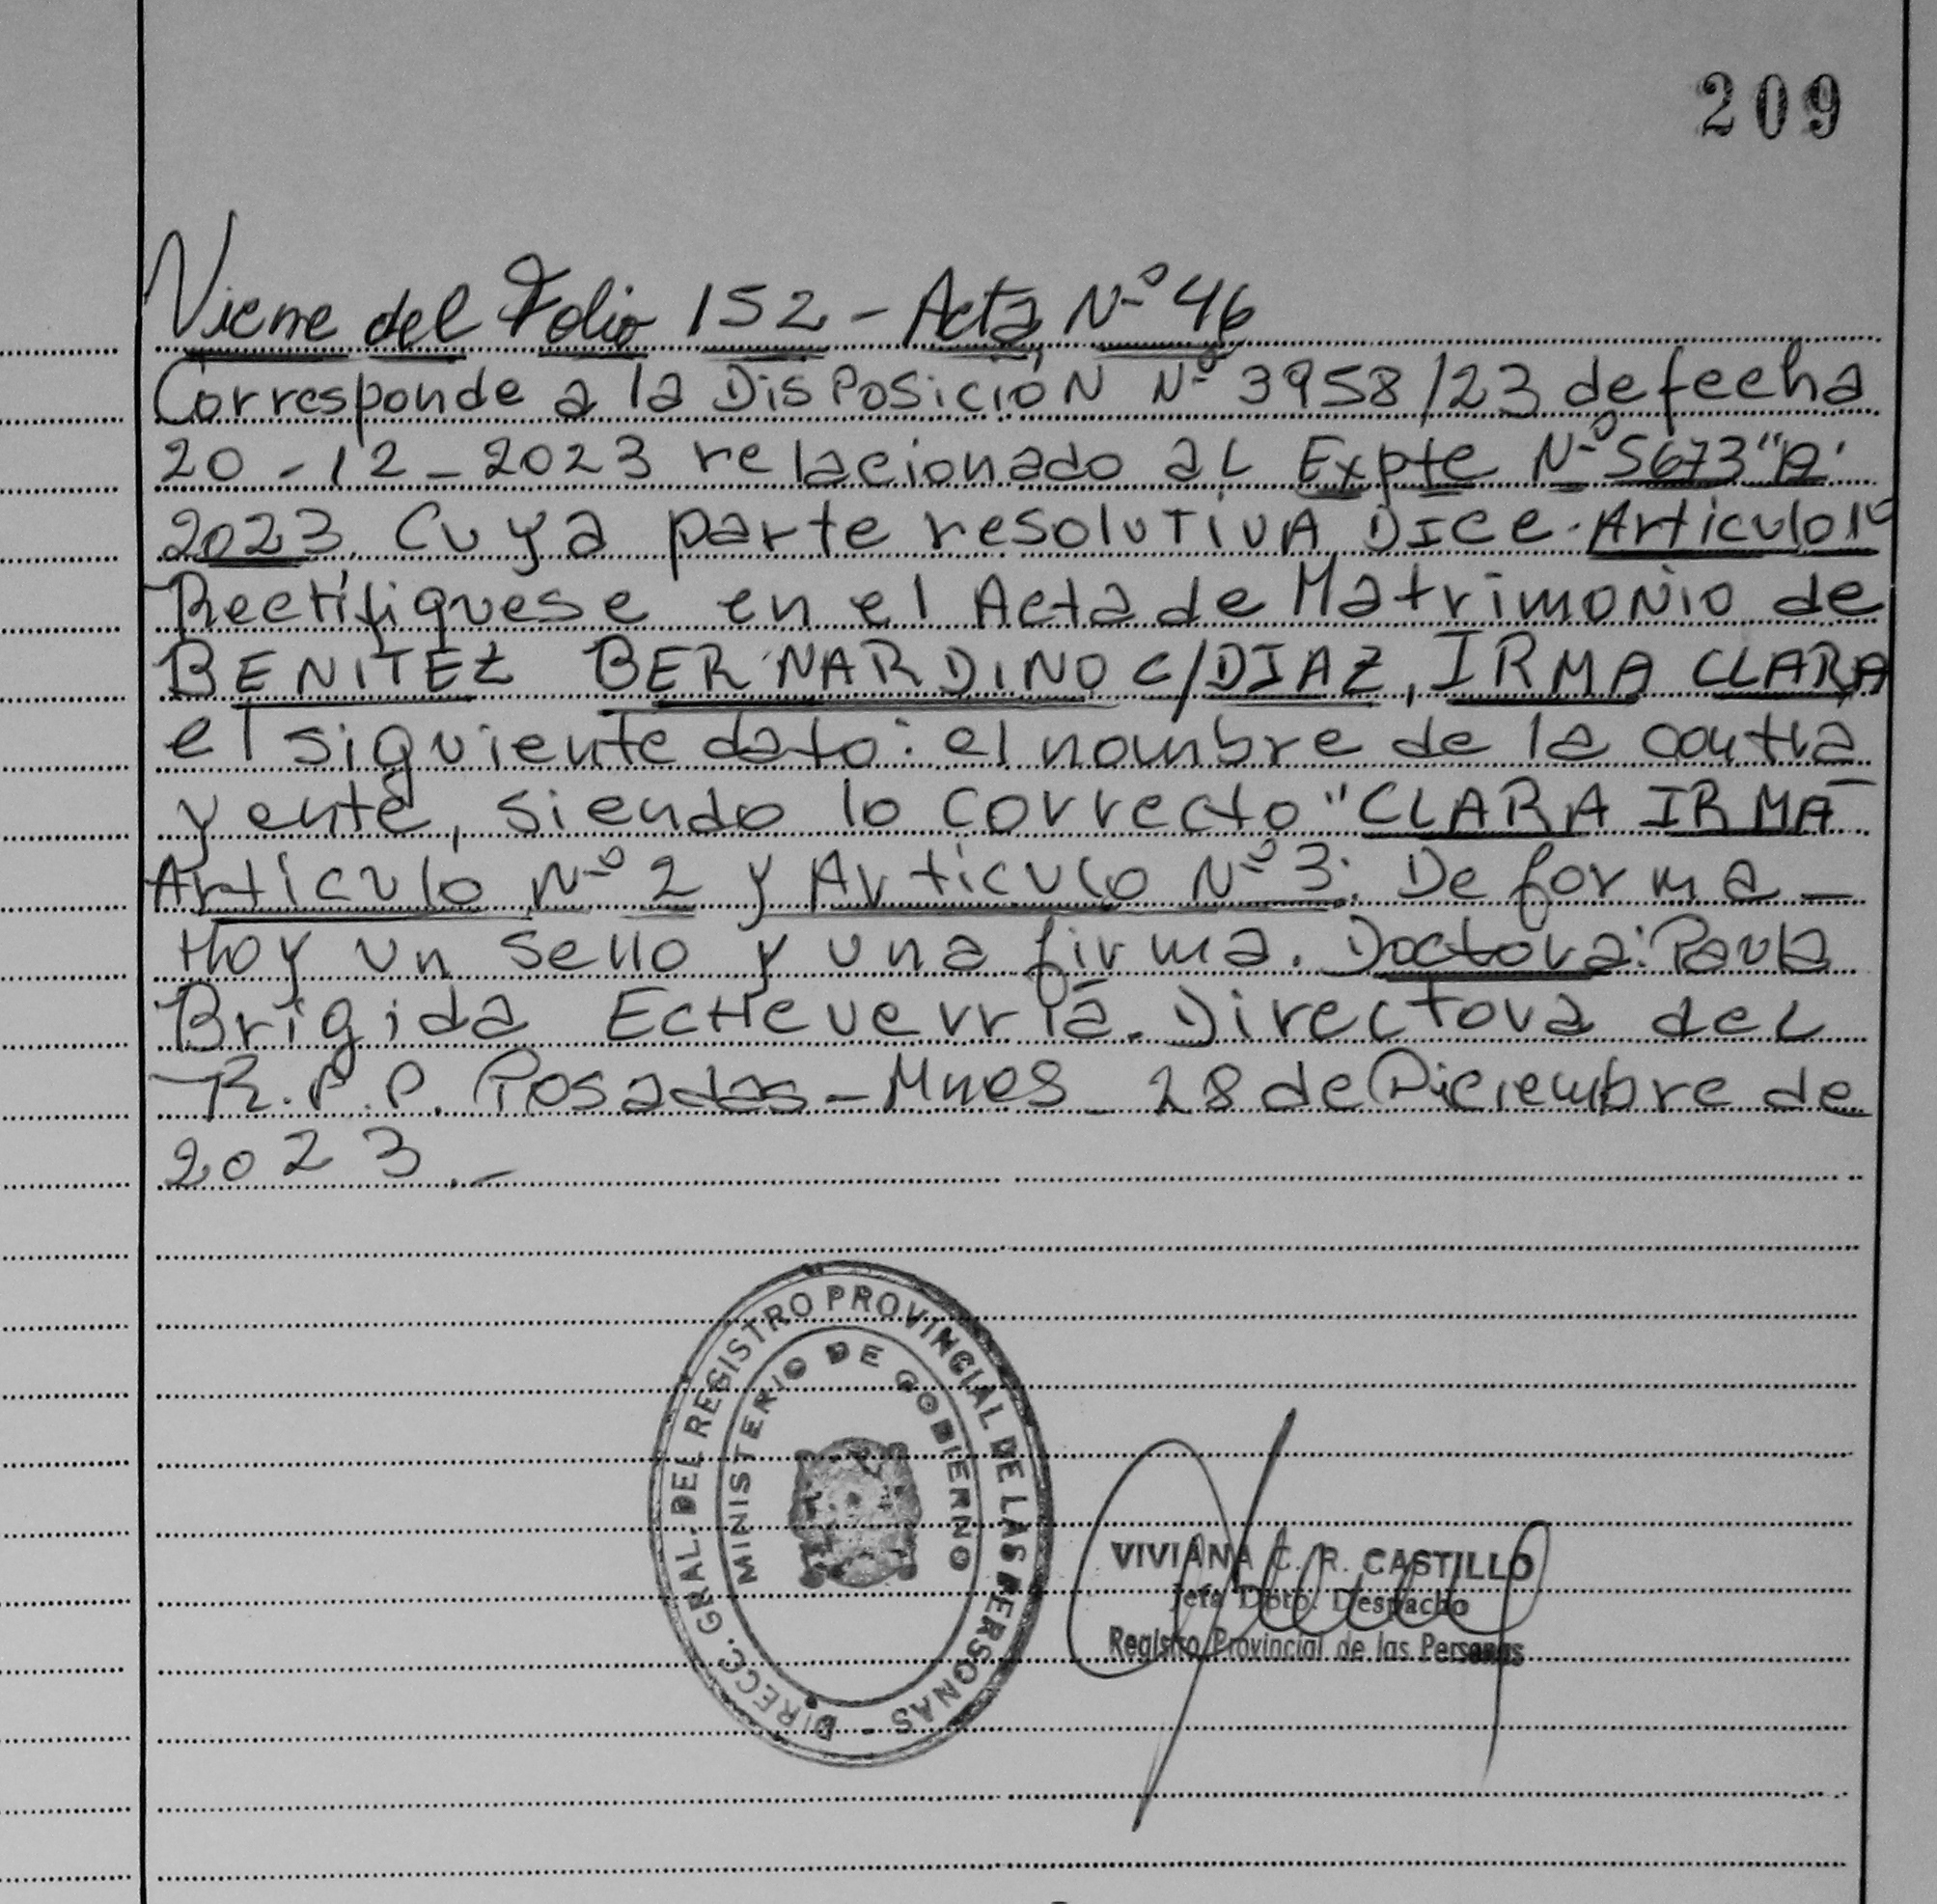 209
Viene del Folio 152 - Acta Nº 46
Corresponde a la Disposición Nº 3958/23 de fecha
20-12-2023 relacionado al Expte Nº 5673
2023. Cuya parte resolutiva Dice. Articulo 1º
Rectifiquese en el Acta de Matrimonio de
BENITEZ BERNARDINO C/DIAZ, IRMA CLARA
el siguiente dato: el nombre de la contra
yente, siendo lo correcto "CLARA IRMA"
Articulo Nº 2 y Articulo Nº 3: De forma -
Hoy un sello y una firma. Doctora: Paula
Brigida Echeverría. Directora del
R.P.P. Posadas - Mnes 28 de Diciembre de
2023.-
DIRECC. GRAL. DEL REGISTRO PROVINCIAL DE LAS PERSONAS -
MINISTERIO DE GOBIERNO
VIVIANA C. R. CASTILLO
Jefa Dpto. Despacho
Registro Provincial de las Personas